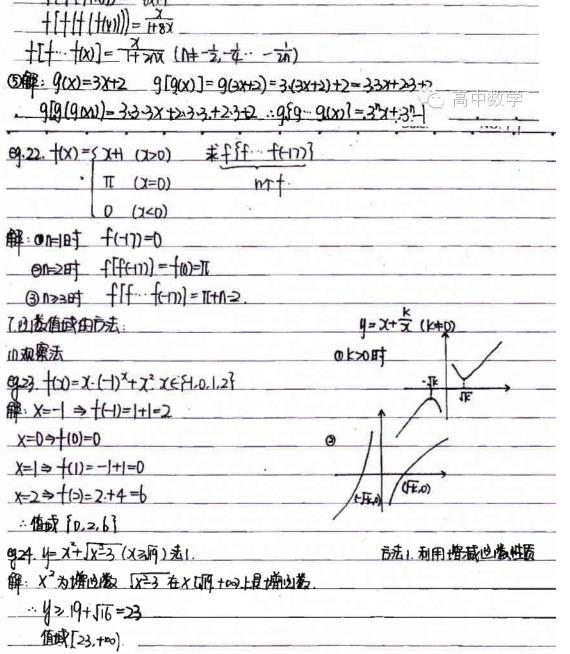 f{f[f(f(x))]}=x/(1+8x)
f[f…f(x)]=x/(1+2nx) (n≠-1/2,-1/4…-1/2n)
⑤解: g(x)=3x+2 g[g(x)]=g(3x+2)=3·(3x+2)+2=3·3x+2·3+2
g[g(g(x))]=3·3·3x+2·3·3+2·3+2 ∴g{g…g(x)}=3ⁿx+3ⁿ-1
高中数学
eg.22. f(x)={x+1 (x>0) 求f{f…f(-17)}
π (x=0) n个f
0 (x<0)
解: ①n=1时 f(-17)=0
②n=2时 f[f(-17)]=f(0)=π
③n≥3时 f[f…f(-17)]=π+n-2.
7.求函数值域的方法: y=x+k/x (k≠0)
(1)观察法 ①k>0时
eg.23. f(x)=x·(-1)ˣ+x² x∈{-1,0,1,2} -√k √k
解: x=-1⇒f(-1)=1+1=2
x=0⇒f(0)=0 ②
x=1⇒f(1)=-1+1=0
x=2⇒f(2)=2+4=6 (-√-k,0) (√-k,0)
∴值域{0,2,6}
eg24. y=x²+√(x²-3) (x≥√19) 法1. 方法1.利用增减函数性质
解: x²为增函数 √(x²-3) 在x[√19,+∞)上是增函数.
∴y≥19+√16=23
值域[23,+∞).